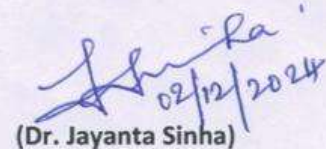 02/12/2024
(Dr. Jayanta Sinha)